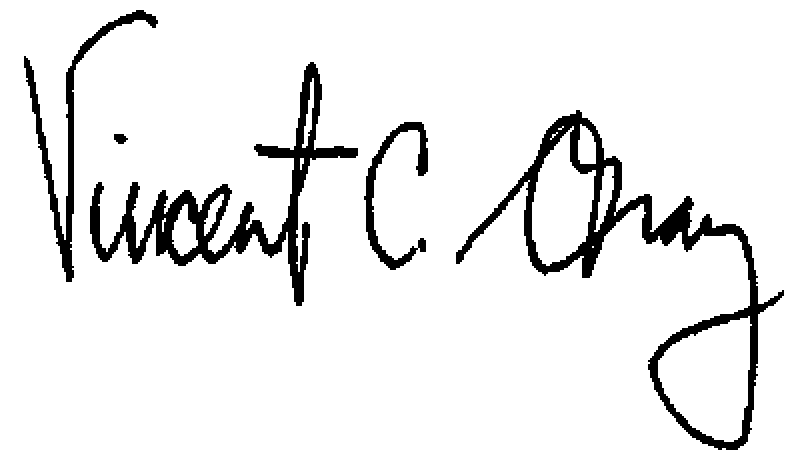 Vincent C. Gray